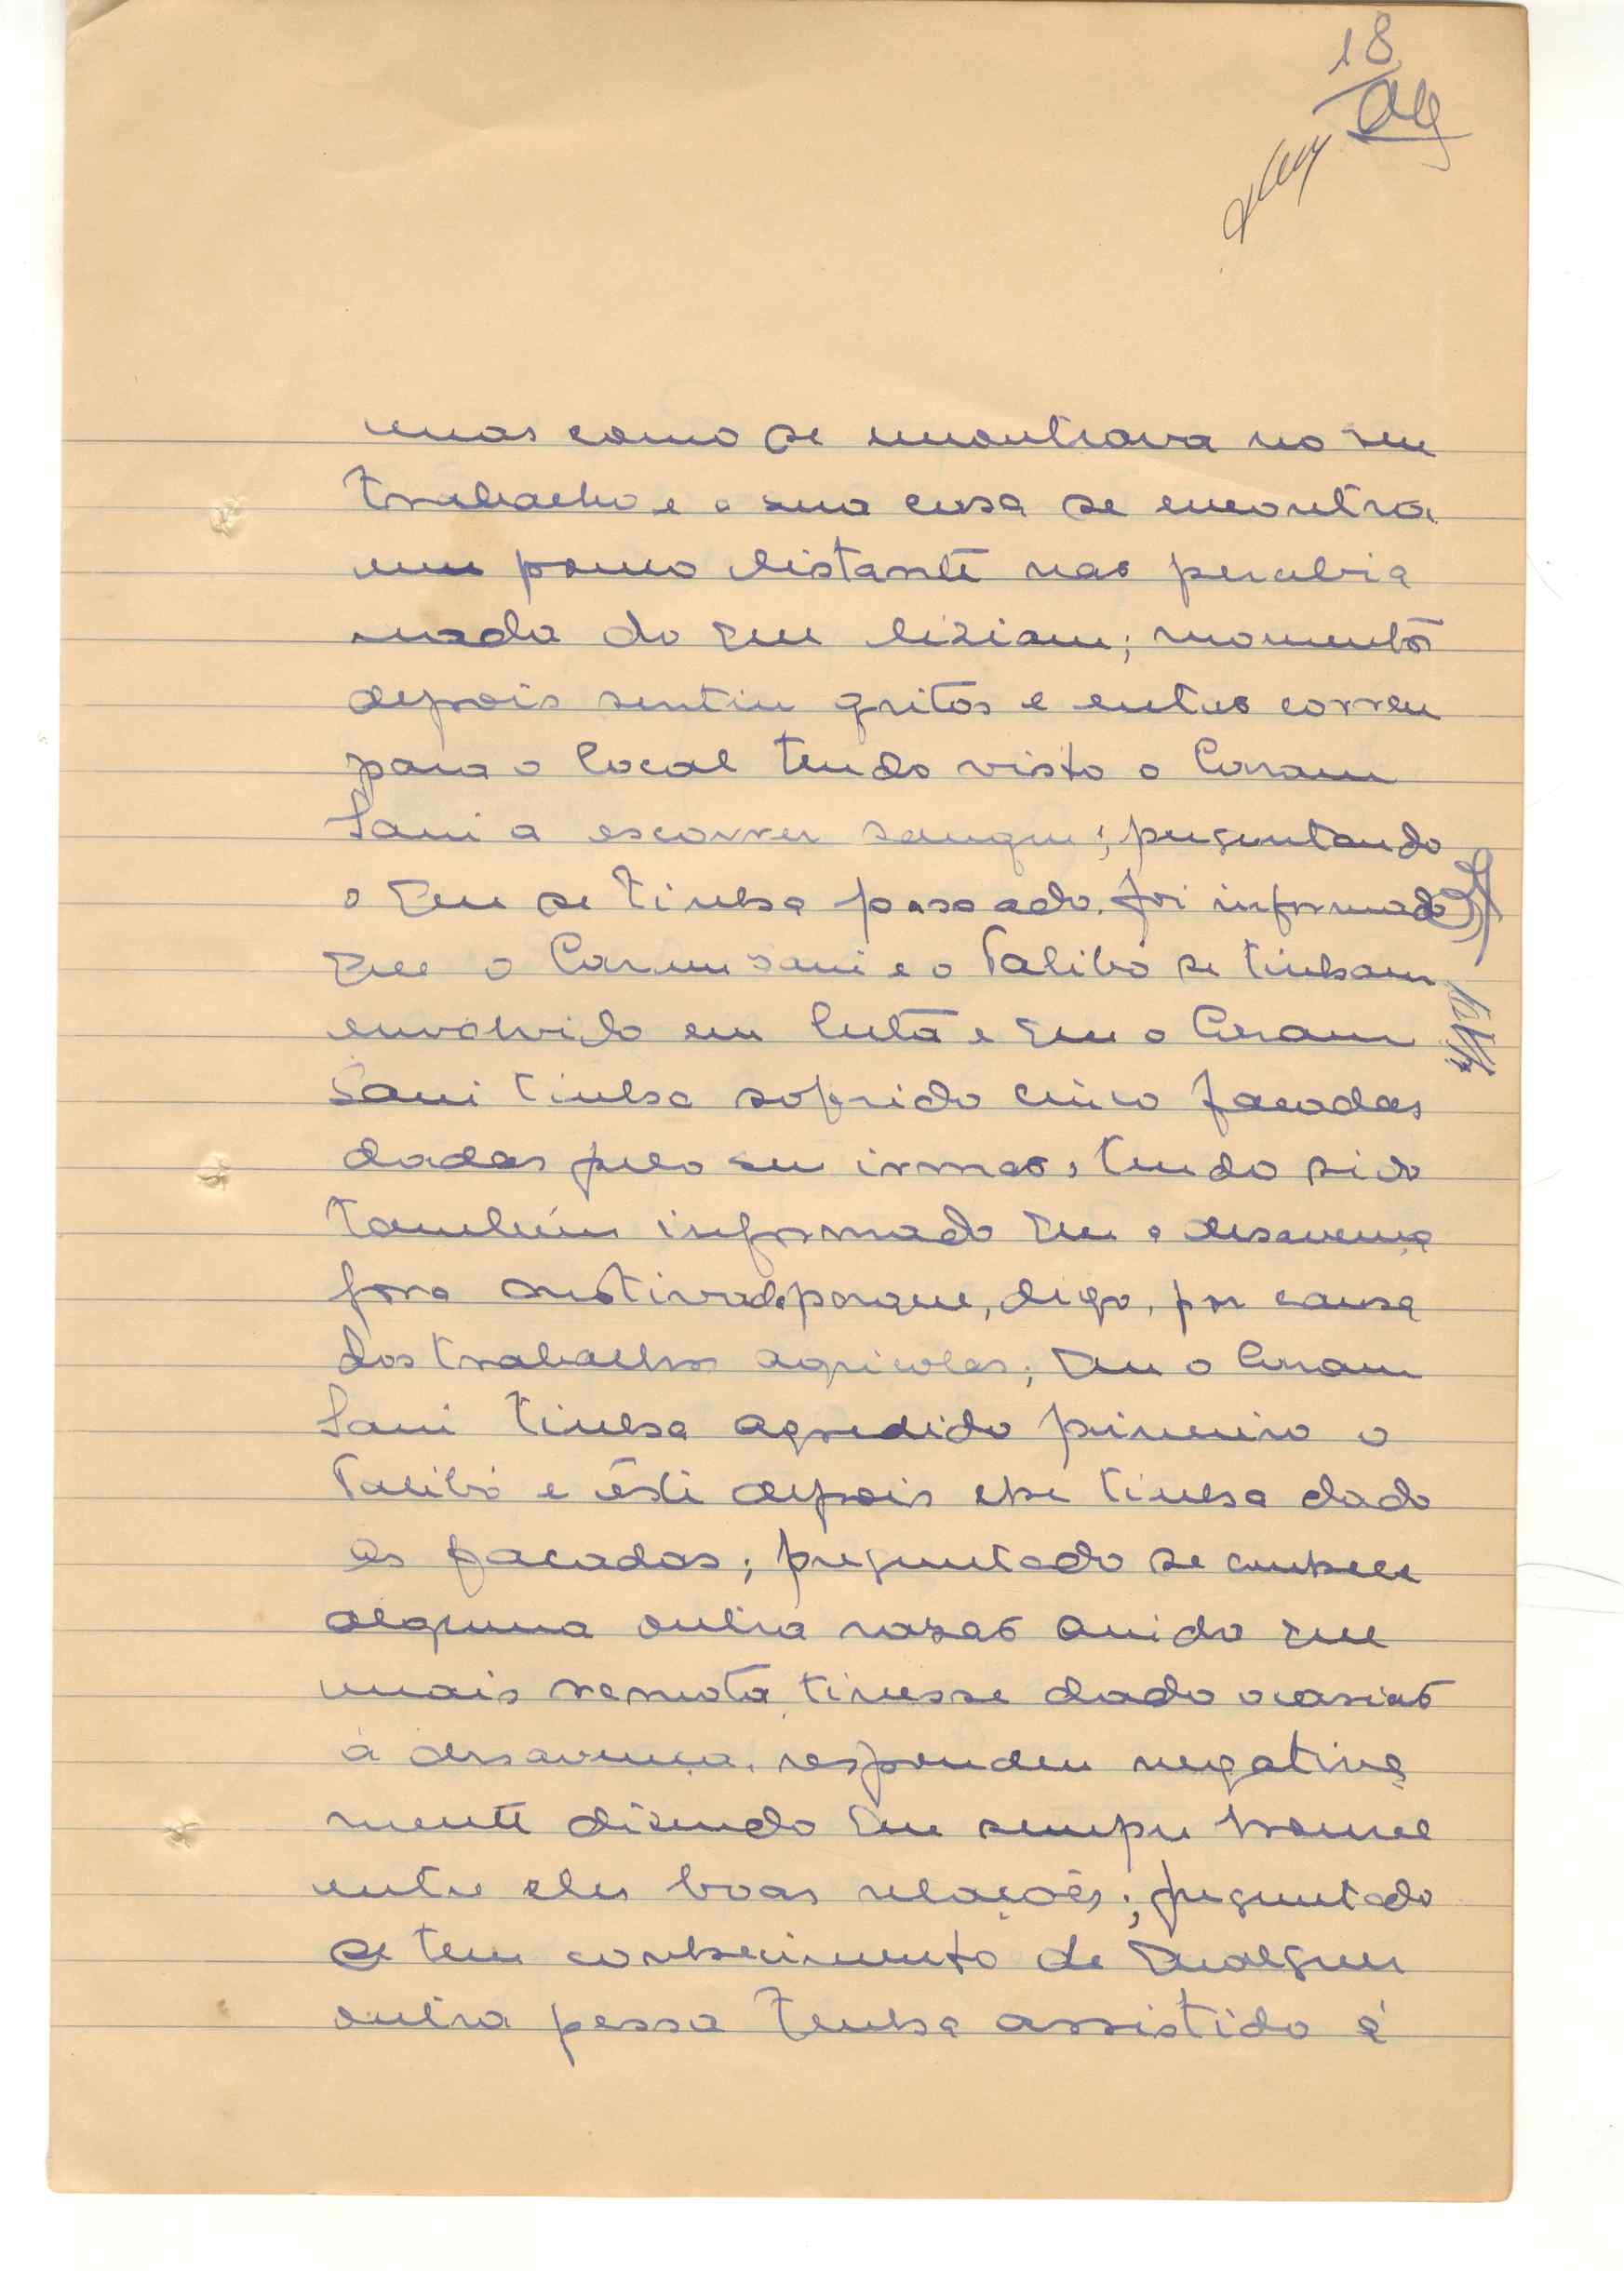 18
mas como se encontrava no seu
trabalho e a sua casa se encontra
um pouco distante nao percebia
nada do que diziam; momentos
depois sentiu gritos e entao correu
para o local tendo visto o Coram
Sani a escorrer sangue; preguntando
o que se tinha passado. foi informado
que o Coram Sani e o Talibó se tinham
envolvido em luta e que o Coram
Sani tinha sofrido cinco facadas
dadas pelo seu irmao, tendo sido
também informado que a desavença
fora motivada porque, digo, por causa
dos trabalhos agricolas; que o Coram
Sani tinha agredido primeiro o
Talibó e êste depois lhe tinha dado
as facadas; preguntado se conhece
alguma outra razao ainda que
mais remota, tivesse dado ocasiao
à desavença, respondeu negativa
mente dizendo que sempre houve
entre eles boas relações; preguntado
se tem conhecimento de qualquer
outra pessoa tenha assistido à